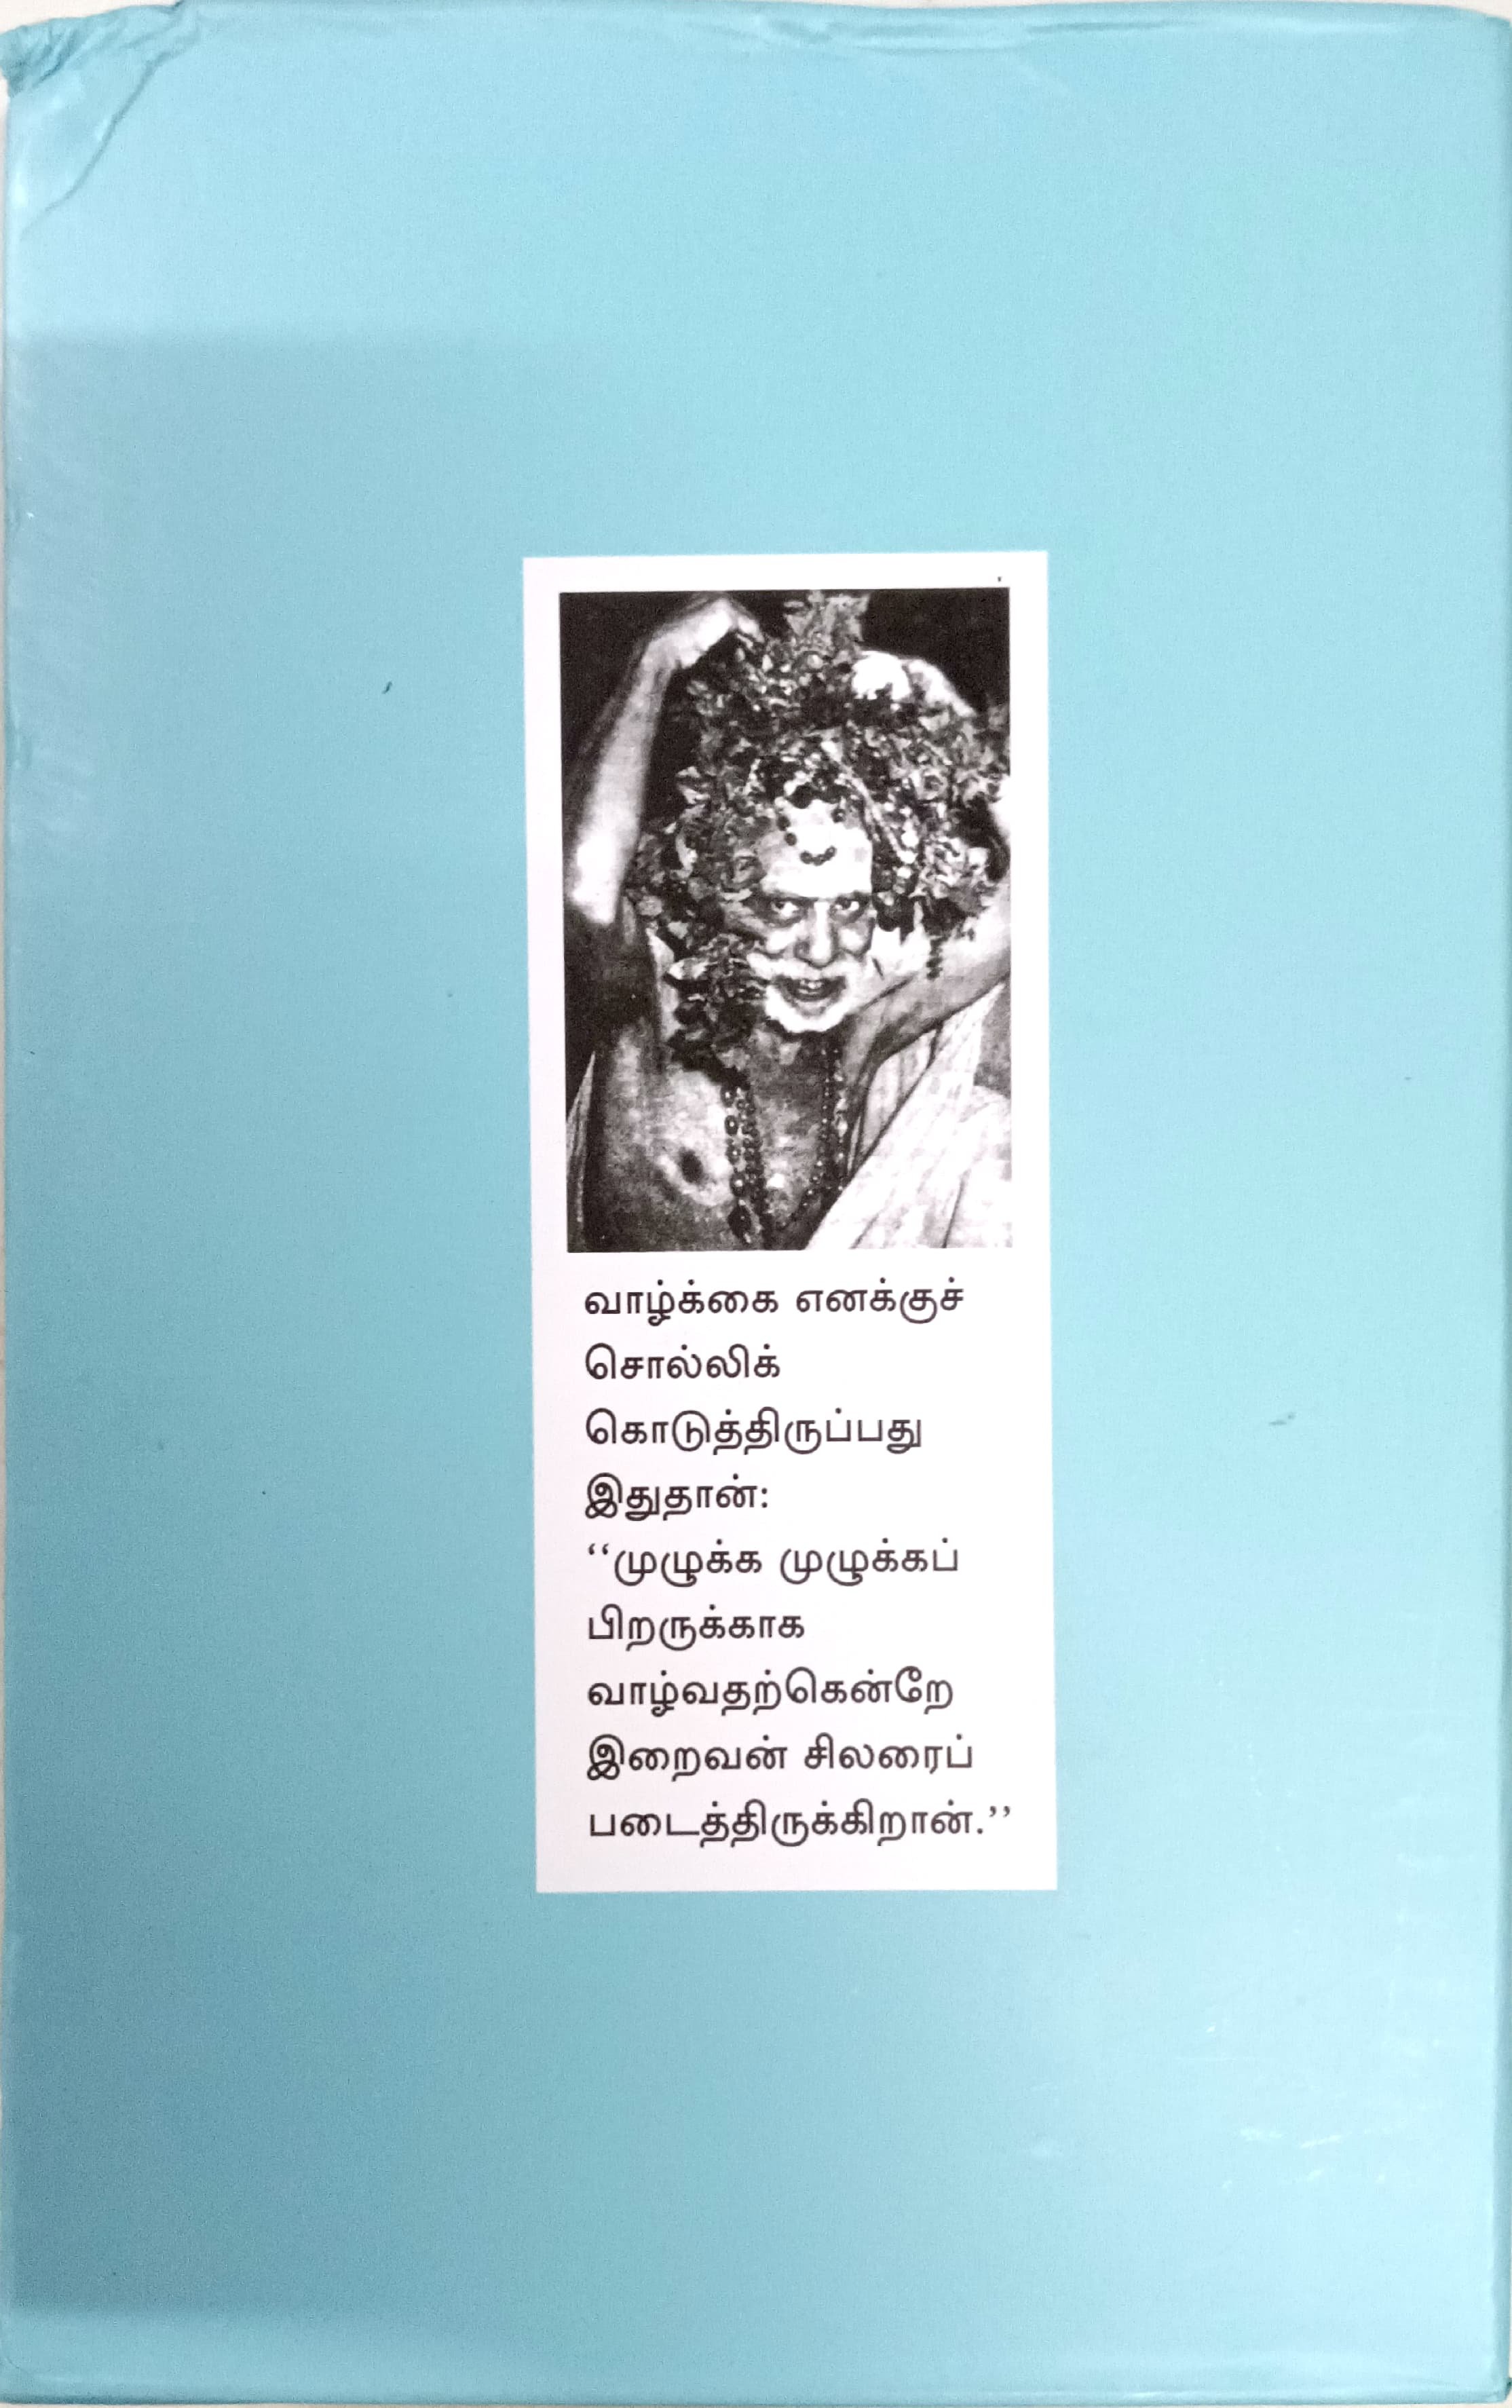 வாழ்க்கை எனக்குச்
சொல்லிக்
கொடுத்திருப்பது
இதுதான்:
‘‘முழுக்க முழுக்கப்
பிறருக்காக
வாழ்வதற்கென்றே
இறைவன் சிலரைப்
படைத்திருக்கிறான்.’’